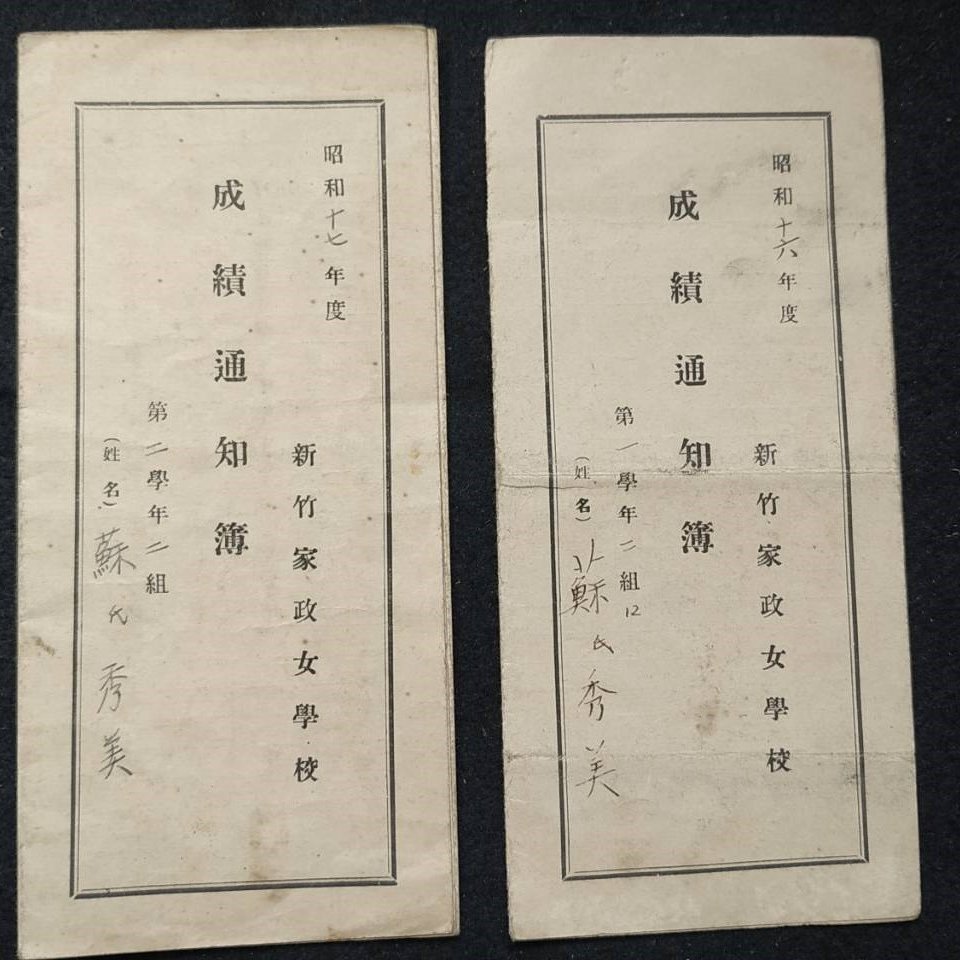 昭和十七年度
新竹家政女學校
成績通知簿
第二學年二組
(姓名)蘇氏秀美
昭和十六年度
新竹家政女學校
成績通知簿
第一學年二組12
(姓名)蘇氏秀美